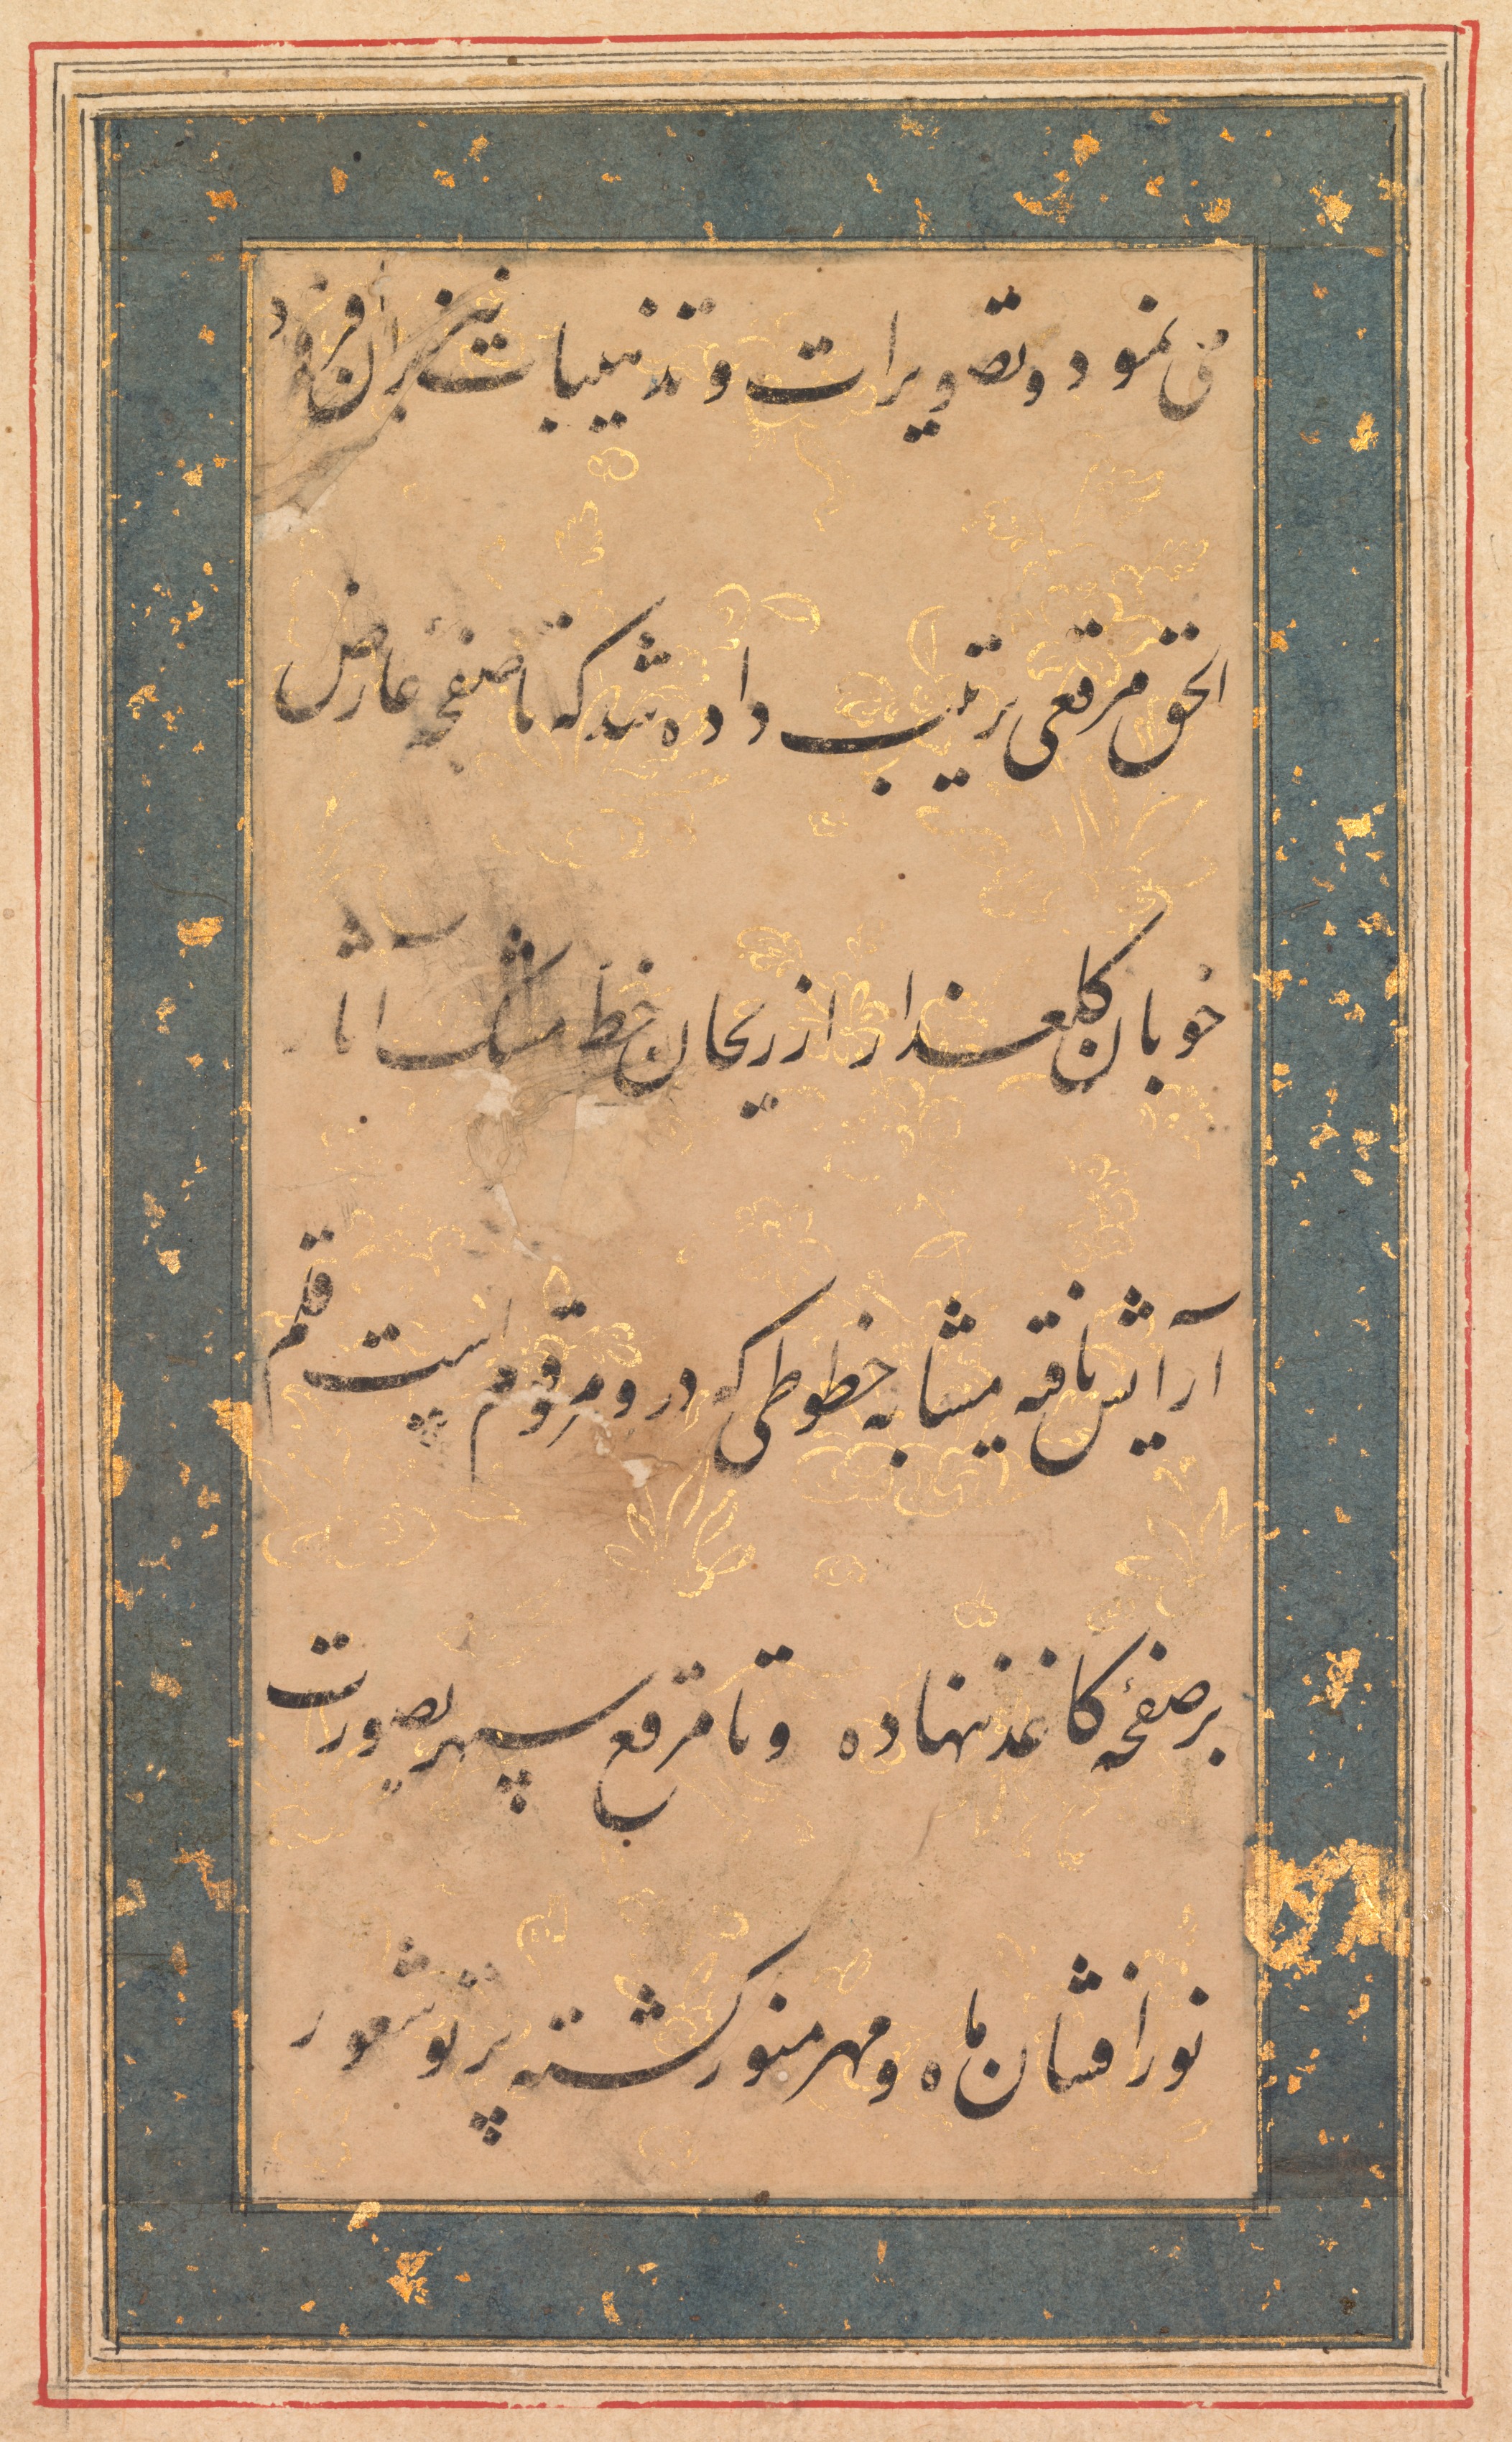 می نمود و تصویرات و تذهیبات نیز بران افزود
الحق مرقعی ترتیب داده شد که تا صفحهٔ عارض
خوبان کلعذار از ریحان خط مشک آثار
آرایش یافته مشابه خطوطی که درو مرقوم است قلم
بر صفحهٔ کاغذ نهاده و تا مرقع سپهر بصورت
نور افشان ماه و مهر منور کشته پرتو شعور